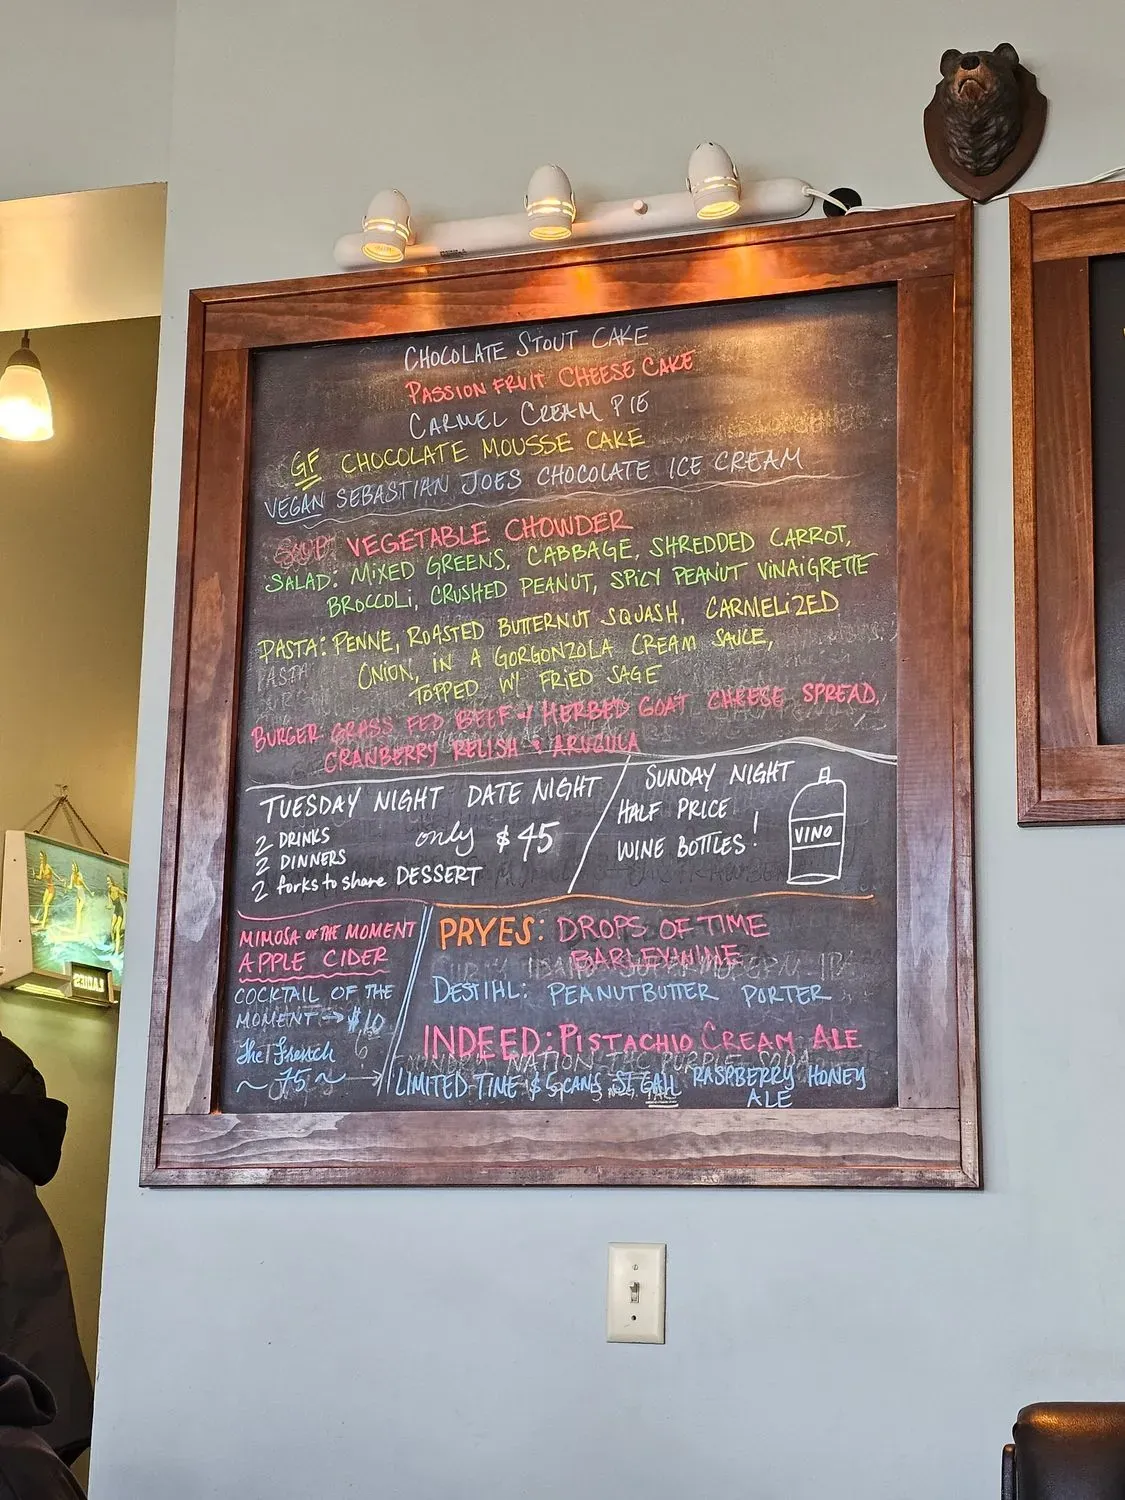 CHOCOLATE STOUT CAKE
PASSION FRUIT CHEESE CAKE
CARMEL CREAM PIE
GF CHOCOLATE MOUSSE CAKE
VEGAN SEBASTIAN JOES CHOCOLATE ICE CREAM
SOUP: VEGETABLE CHOWDER
SALAD: MIXED GREENS, CABBAGE, SHREDDED CARROT,
BROCCOLI, CRUSHED PEANUT, SPICY PEANUT VINAIGRETTE
PASTA: PENNE, ROASTED BUTTERNUT SQUASH, CARMELIZED
ONION, IN A GORGONZOLA CREAM SAUCE,
TOPPED W/ FRIED SAGE
BURGER GRASS FED BEEF HERBED GOAT CHEESE SPREAD,
CRANBERRY RELISH + ARUGULA
TUESDAY NIGHT DATE NIGHT
2 DRINKS
2 DINNERS
2 forks to share DESSERT
only $45
SUNDAY NIGHT
HALF PRICE
WINE BOTTLES!
VINO
MIMOSA OF THE MOMENT
APPLE CIDER
COCKTAIL OF THE
MOMENT → $10
The French
~ 75 ~
PRYES: DROPS OF TIME
BARLEYWINE
DESTIHL: PEANUTBUTTER PORTER
INDEED: PISTACHIO CREAM ALE
LIMITED TIME $5 CANS ST GALL RASPBERRY HONEY
ALE